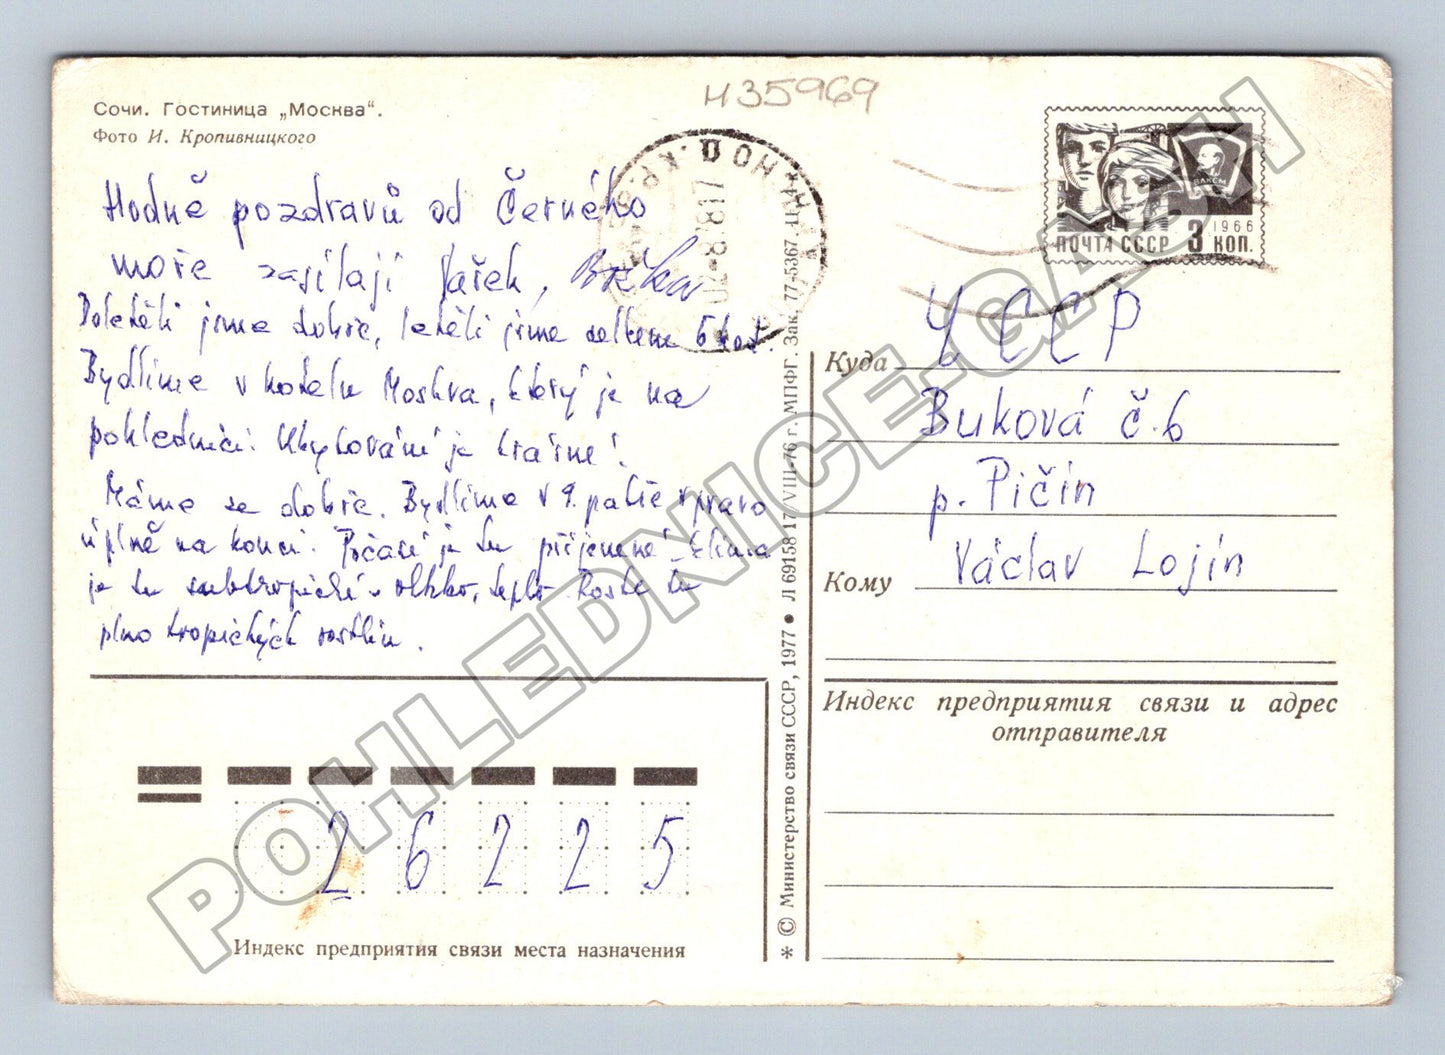 Сочи. Гостиница „Москва“.
Фото И. Кропивницкого
Hodně pozdravů od Černého
moře zasílají Vašek, Božka
Doletěli jsme dobře, letěli jsme celkem 5 hod.
Bydlíme v hotelu Moskva, který je na
pohlednici. Ubytování je krásné.
Máme se dobře. Bydlíme v 9. patře vpravo
úplně na konci. Počasí je tu příjemné. Klima
je tu subtropické - vlhko, teplo. Roste tu
plno tropických rostlin.
Индекс предприятия связи места назначения
2 6 2 2 5
И35969
ПОЧТА СССР
1966
3 КОП.
ВЛКСМ
Куда ЧССР
Buková č. 6
p. Pičín
Кому Václav Lojín
Индекс предприятия связи и адрес
отправителя
* © Министерство связи СССР, 1977 ● Л 69158 17/VIII-76 г. МПФГ. Зак. 77-5367.
POHLEDNICE-GASH